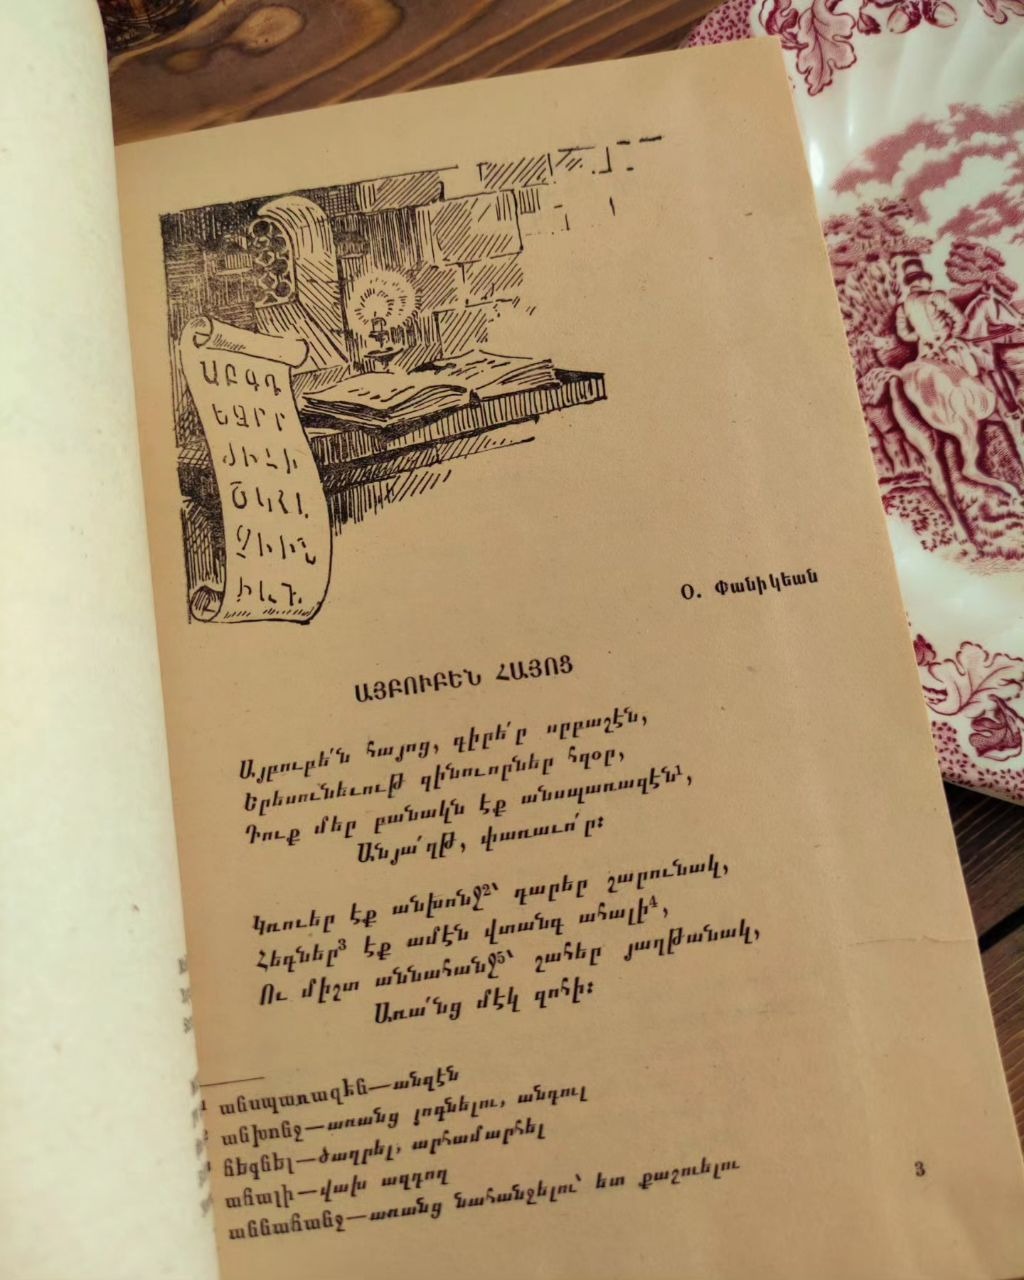 ԱԲԳԴ
ԵԶԷԸ
Օ. Փանիկեան
ԱՅԲՈՒԲԵՆ ՀԱՅՈՑ
Այբուբե՛ն հայոց, գիրե՛ր սրբաշէն,
Երեսունեւութ զինուորներ հզօր,
Դուք մեր բանակն էք անսպառազէն¹,
Անյա՛ղթ, փառաւո՛ր։
Կռուեր էք անխոնջ²՝ դարեր շարունակ,
Հեգներ³ էք ամէն վտանգ ահալի⁴,
Ու միշտ աննահանջ⁵՝ շահեր յաղթանակ,
Առա՛նց մէկ զոհի։
¹ անսպառազէն—անզէն
անխոնջ—առանց յոգնելու, անդուլ
հեգնել—ծաղրել, արհամարհել
ահալի—վախ ազդող
աննահանջ—առանց նահանջելու՝ ետ քաշուելու
3